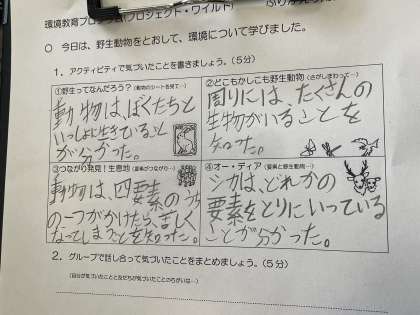 環境教育プログラム(プロジェクト・ワイルド)
○ 今日は、野生動物をとおして、環境について学びました。
1．アクティビティで気づいたことを書きましょう。(5分)
①野生ってなんだろう？(動物のシートを見て…)
動物は、ぼくたちと
いっしょに生きていること
が分かった。
②どこもかしこも野生動物(さがしまわって…)
周りには、たくさんの
生物がいることを
知った。
③つながり発見！生息地
動物は、四要素のうち
の一つがかけたら、苦しく
なってしまうことを知った。
④オー・ディア(要素と野生動物…)
シカは、どれかの
要素をとりにいっている
ことが分かった。
2．グループで話し合って気づいたことをまとめましょう。(5分)
(自分が気づいたことと友だちが気づいたことのちがいは…)